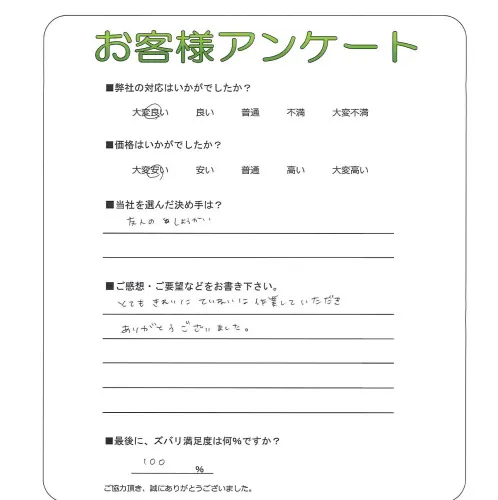 お客様アンケート
■弊社の対応はいかがでしたか？
大変良い 良い 普通 不満 大変不満
■価格はいかがでしたか？
大変安い 安い 普通 高い 大変高い
■当社を選んだ決め手は？
友人の しょうかい
■ご感想・ご要望などをお書き下さい。
とても きれいに ていねいに 作業していただき
ありがとうございました。
■最後に、ズバリ満足度は何%ですか？
100 %
ご協力頂き、誠にありがとうございました。